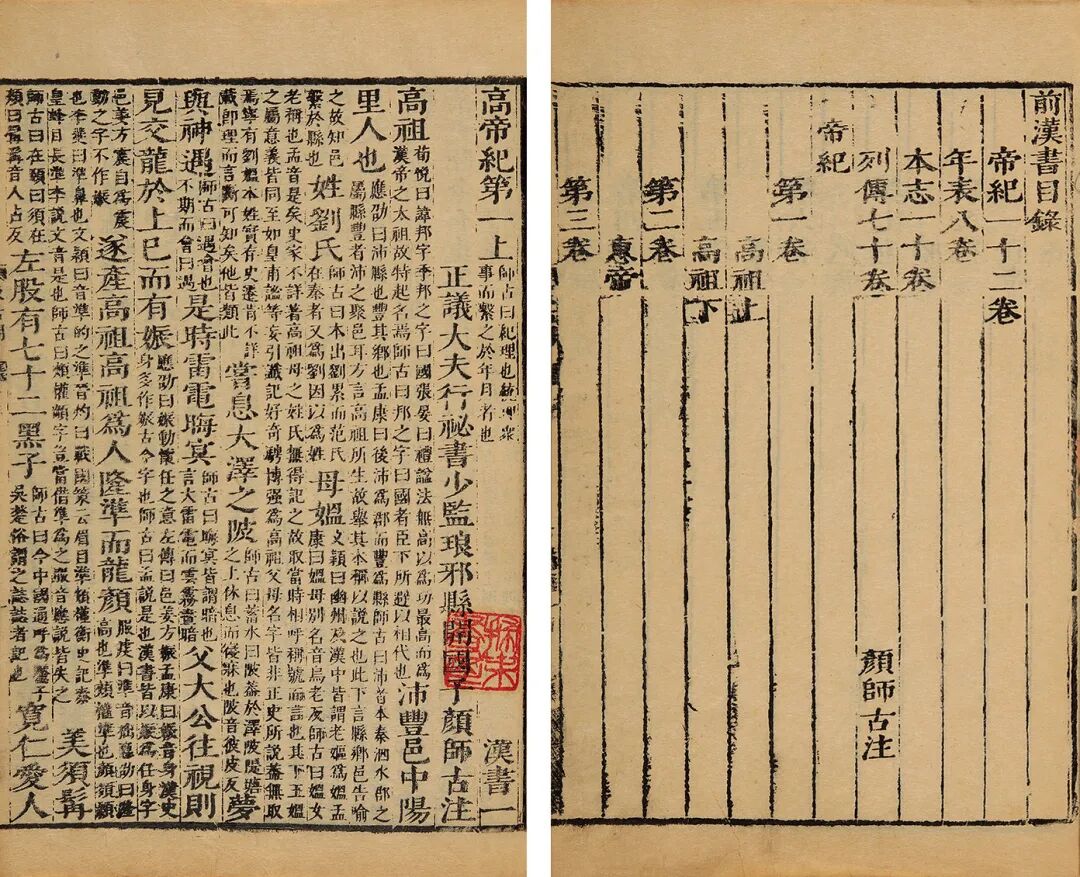 前漢書目錄
帝紀一十二卷
年表八卷
本志一十卷
列傳七十卷 顏師古注
帝紀
第一卷
高祖上
高祖下
第二卷
惠帝
第三卷
高帝紀第一上 師古曰紀理也統理衆事而繫之於年月者也 漢書一
正議大夫行祕書少監琅邪縣開國子顏師古注
高祖 荀悅曰諱邦字季邦之字曰國張晏曰禮諡法無高以爲功最高而爲漢帝之太祖故特起名焉師古曰邦之字曰國者臣下所避以相代也 沛豐邑中陽
里人也 應劭曰沛縣也豐其鄉也孟康曰後沛爲郡而豐爲縣師古曰沛者本秦泗水郡之屬縣豐者沛之聚邑耳方言高祖所生故舉其本稱以說之也此下言縣鄉邑告喻
之故知邑繫於縣也 姓劉氏 師古曰本出劉累而范氏在秦者又爲劉因以爲姓 母媼 文穎曰幽州及漢中皆謂老嫗爲媼孟康曰媼母別名音烏老反師古曰媼女
老稱也孟音是矣史家不詳著高祖母之姓氏無得記之故取當時相呼稱號而言也其下王媼之屬意義皆同至如皇甫謐等妄引讖記好奇騁博强爲高祖父母名字皆非正史所說蓋無取
焉寧有劉媼本姓實存史遷肯不詳載即理而言斷可知矣他皆類此 嘗息大澤之陂 師古曰蓄水曰陂蓋於澤陂隄塘之上休息而寢寐也陂音彼皮反 夢
與神遇 師古曰遇會也不期而會曰遇 是時雷電晦冥 師古曰晦冥皆謂暗也言大雷電而雲霧晝暗 父大公往視則
見交龍於上已而有娠 應劭曰娠動懷任之意左傳曰邑姜方娠孟康曰娠音身漢史身多作娠古今字也師古曰孟說是也漢書皆以娠爲任身字
邑姜方震自爲震動之字不作娠 遂產高祖高祖爲人隆準而龍顏 服虔曰準音拙應劭曰隆高也準頰權準也顏頟顙
也李斐曰準鼻也文穎曰音準的之準晉灼曰戰國策云眉目準頞權衡史記秦皇蜂目長準李說文音是也師古曰頰權顴字豈當借準爲之服音應說皆失之 美須髯
師古曰在頤曰須在頰曰髯髯音人占反 左股有七十二黑子 師古曰今中國通呼爲黶子吳楚俗謂之誌誌者記也 寬仁愛人